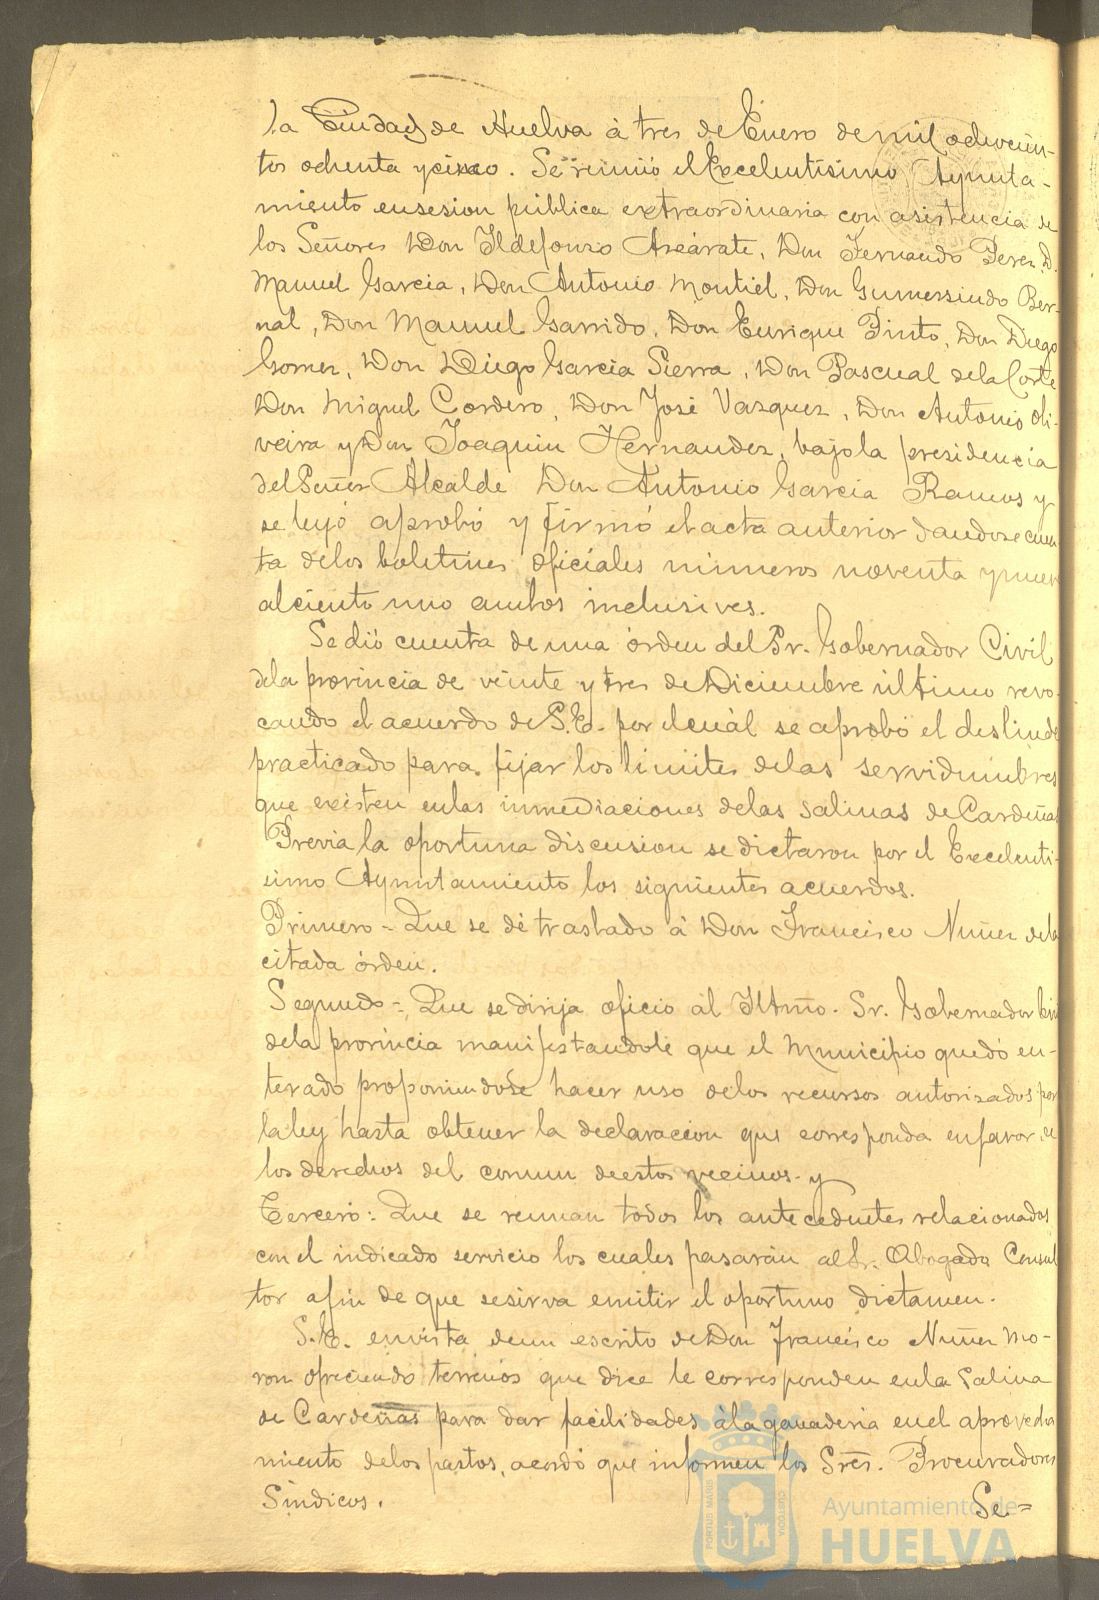 la Ciudad de Huelva á tres de Enero de mil ochocien-
tos ochenta y cinco. Se reunió el Excelentísimo Ayunta-
miento en sesion pública extraordinaria con asistencia de
los Señores Don Ildefonso Azcárate, Don Fernando Perez, D.
Manuel Garcia, Don Antonio Montiel, Don Gumersindo Ber-
nal, Don Manuel Garrido, Don Enrique Pinto, Don Diego
Gomez, Don Diego Garcia Sierra, Don Pascual de la Corte
Don Miguel Cordero, Don José Vazquez, Don Antonio Oli-
veira y Don Joaquin Hernandez, bajo la presidencia
del Señor Alcalde Don Antonio Garcia Ramos y
se leyó aprobó y firmó el acta anterior dandose cuen
ta de los boletines oficiales números noventa y nueve
al ciento uno ambos inclusives.
Se dió cuenta de una órden del Sr. Gobernador Civil
de la provincia de veinte y tres de Diciembre último revo-
cando el acuerdo de S.E. por el cuál se aprobó el deslinde
practicado para fijar los límites de las servidumbres
que existen en las inmediaciones de las salinas de Cardeñas
Prévia la oportuna discusion se dictaron por el Excelenti-
simo Ayuntamiento los siguientes acuerdos.
Primero = Que se dé traslado á Don Francisco Nuñez de la
citada órden.
Segundo = Que se dirija oficio al Iltmo. Sr. Gobernador Civil
de la provincia manifestandole que el Municipio quedó en-
terado proponiendose hacer uso de los recursos autorizados por
la ley hasta obtener la declaracion que corresponda en favor de
los derechos del comun de estos vecinos. y
Tercero: Que se reunan todos los antecedentes relacionados
con el indicado servicio los cuales pasarán al Sr. Abogado Consul
tor afin de que se sirva emitir el oportuno dictamen.
S.E. en vista de un escrito de Don Francisco Nuñez Mo-
ron ofreciendo terrenos que dice le corresponden en la Salina
de Cardeñas para dar facilidades á la ganaderia en el aprovecha
miento de los pastos, acordó que informen los Sres. Procuradores
Síndicos.
Se=
PORTUS MARIS
CUSTODIA
Ayuntamiento de
HUELVA